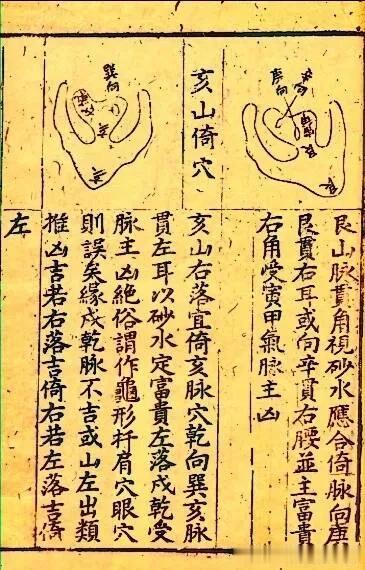 庚向
艮
艮
艮山脉貫角視砂水應合倚脉向庚
艮貫右耳或向辛貫右腰並主富貴
右角受寅甲氣脉主凶
亥山倚穴
巽向
亥
亥山右落宜倚亥脉穴乾向巽亥脉
貫左耳以砂水定富貴左落戌乾受
脉主凶絶俗謂作龜形扦肩穴眼穴
則誤矣緣戌乾脉不吉或山左出類
推凶吉若右落吉倚右若左落吉倚
左